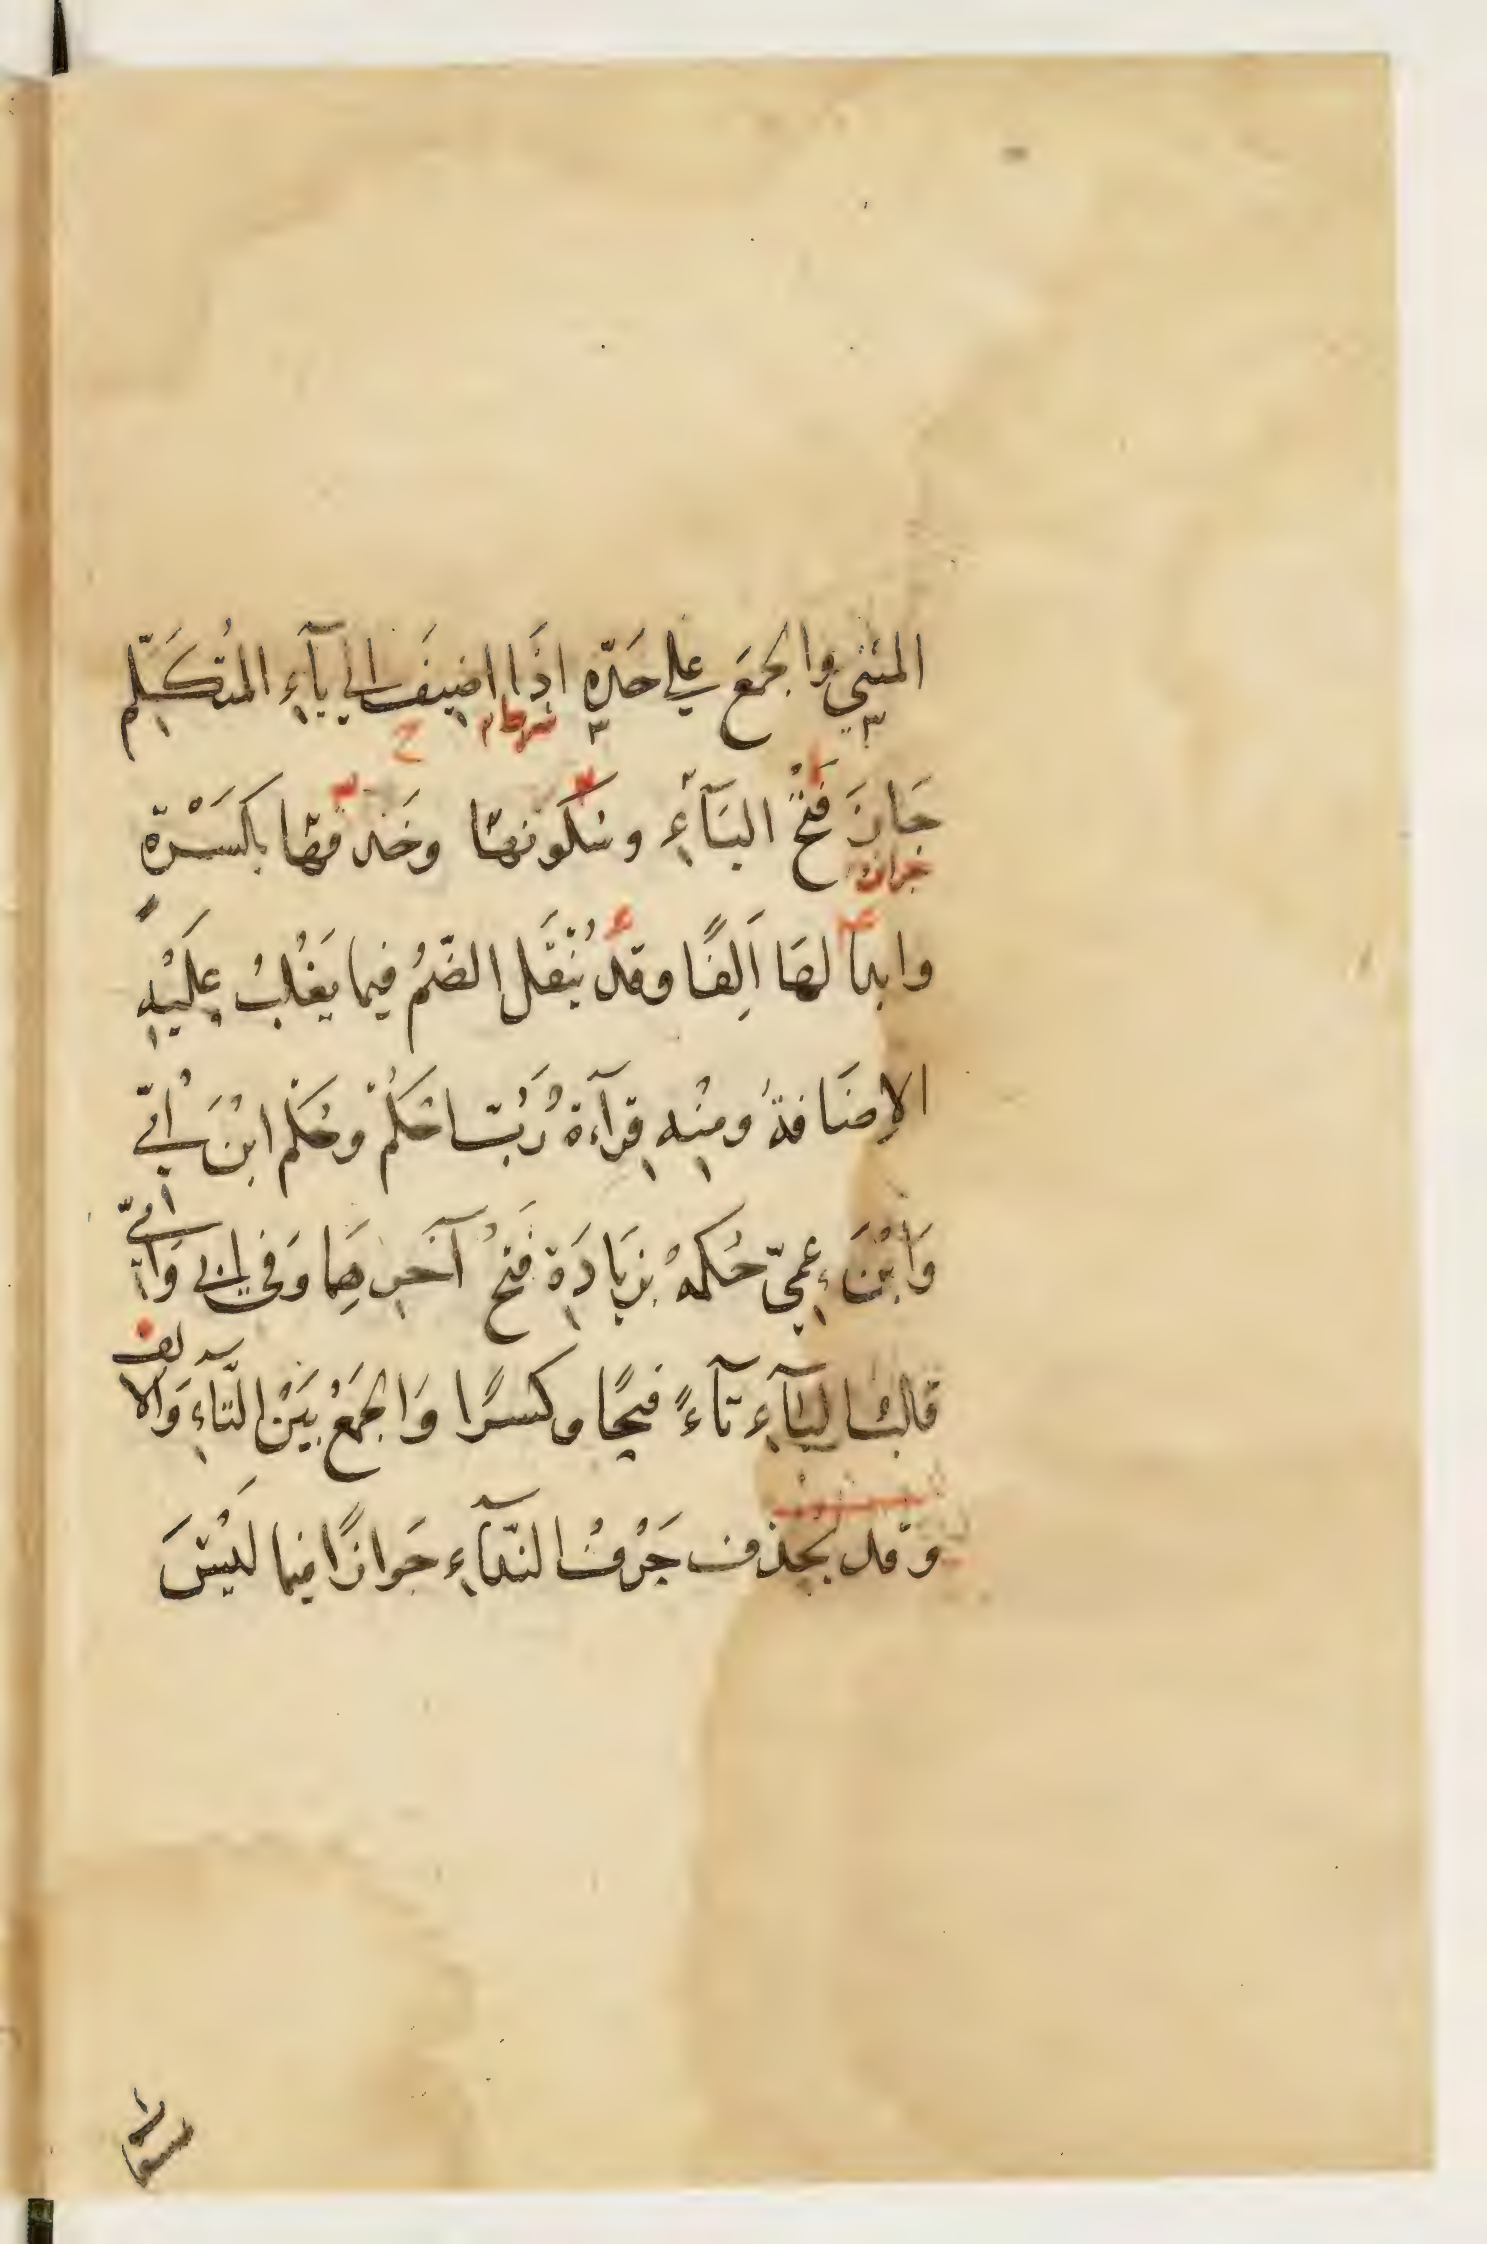 المثنى والجمع على حدّه اذَا اضيفَ الى يآءِ المُتكَلّم
شرط
جَازَ فَتْحُ اليَآءِ وسُكونهَا وحَذفهَا بِكَسْرَة
جزاء
وابدالهَا اَلِفًا وقد يُنْقَل الضّمُ فيما يَغْلبُ عليْهِ
الاِضَافةُ ومنْه قرآءة رَبُّ احْكُمْ وحُكْم ابْنَ اُمّي
وَابْنَ عمّيّ حُكمهُ بزيَادَة فَتحْ آخرهمَا وَفي ابي وَاُمّي
قلبُ اليَآءِ تآءً فتحًا وكسرًا وَالجَمْعُ بَيْنَ التّآءِ وَالالف
وقد يحذف حَرْفُ النّدآءِ جَوازًا فيما لَيْسَ